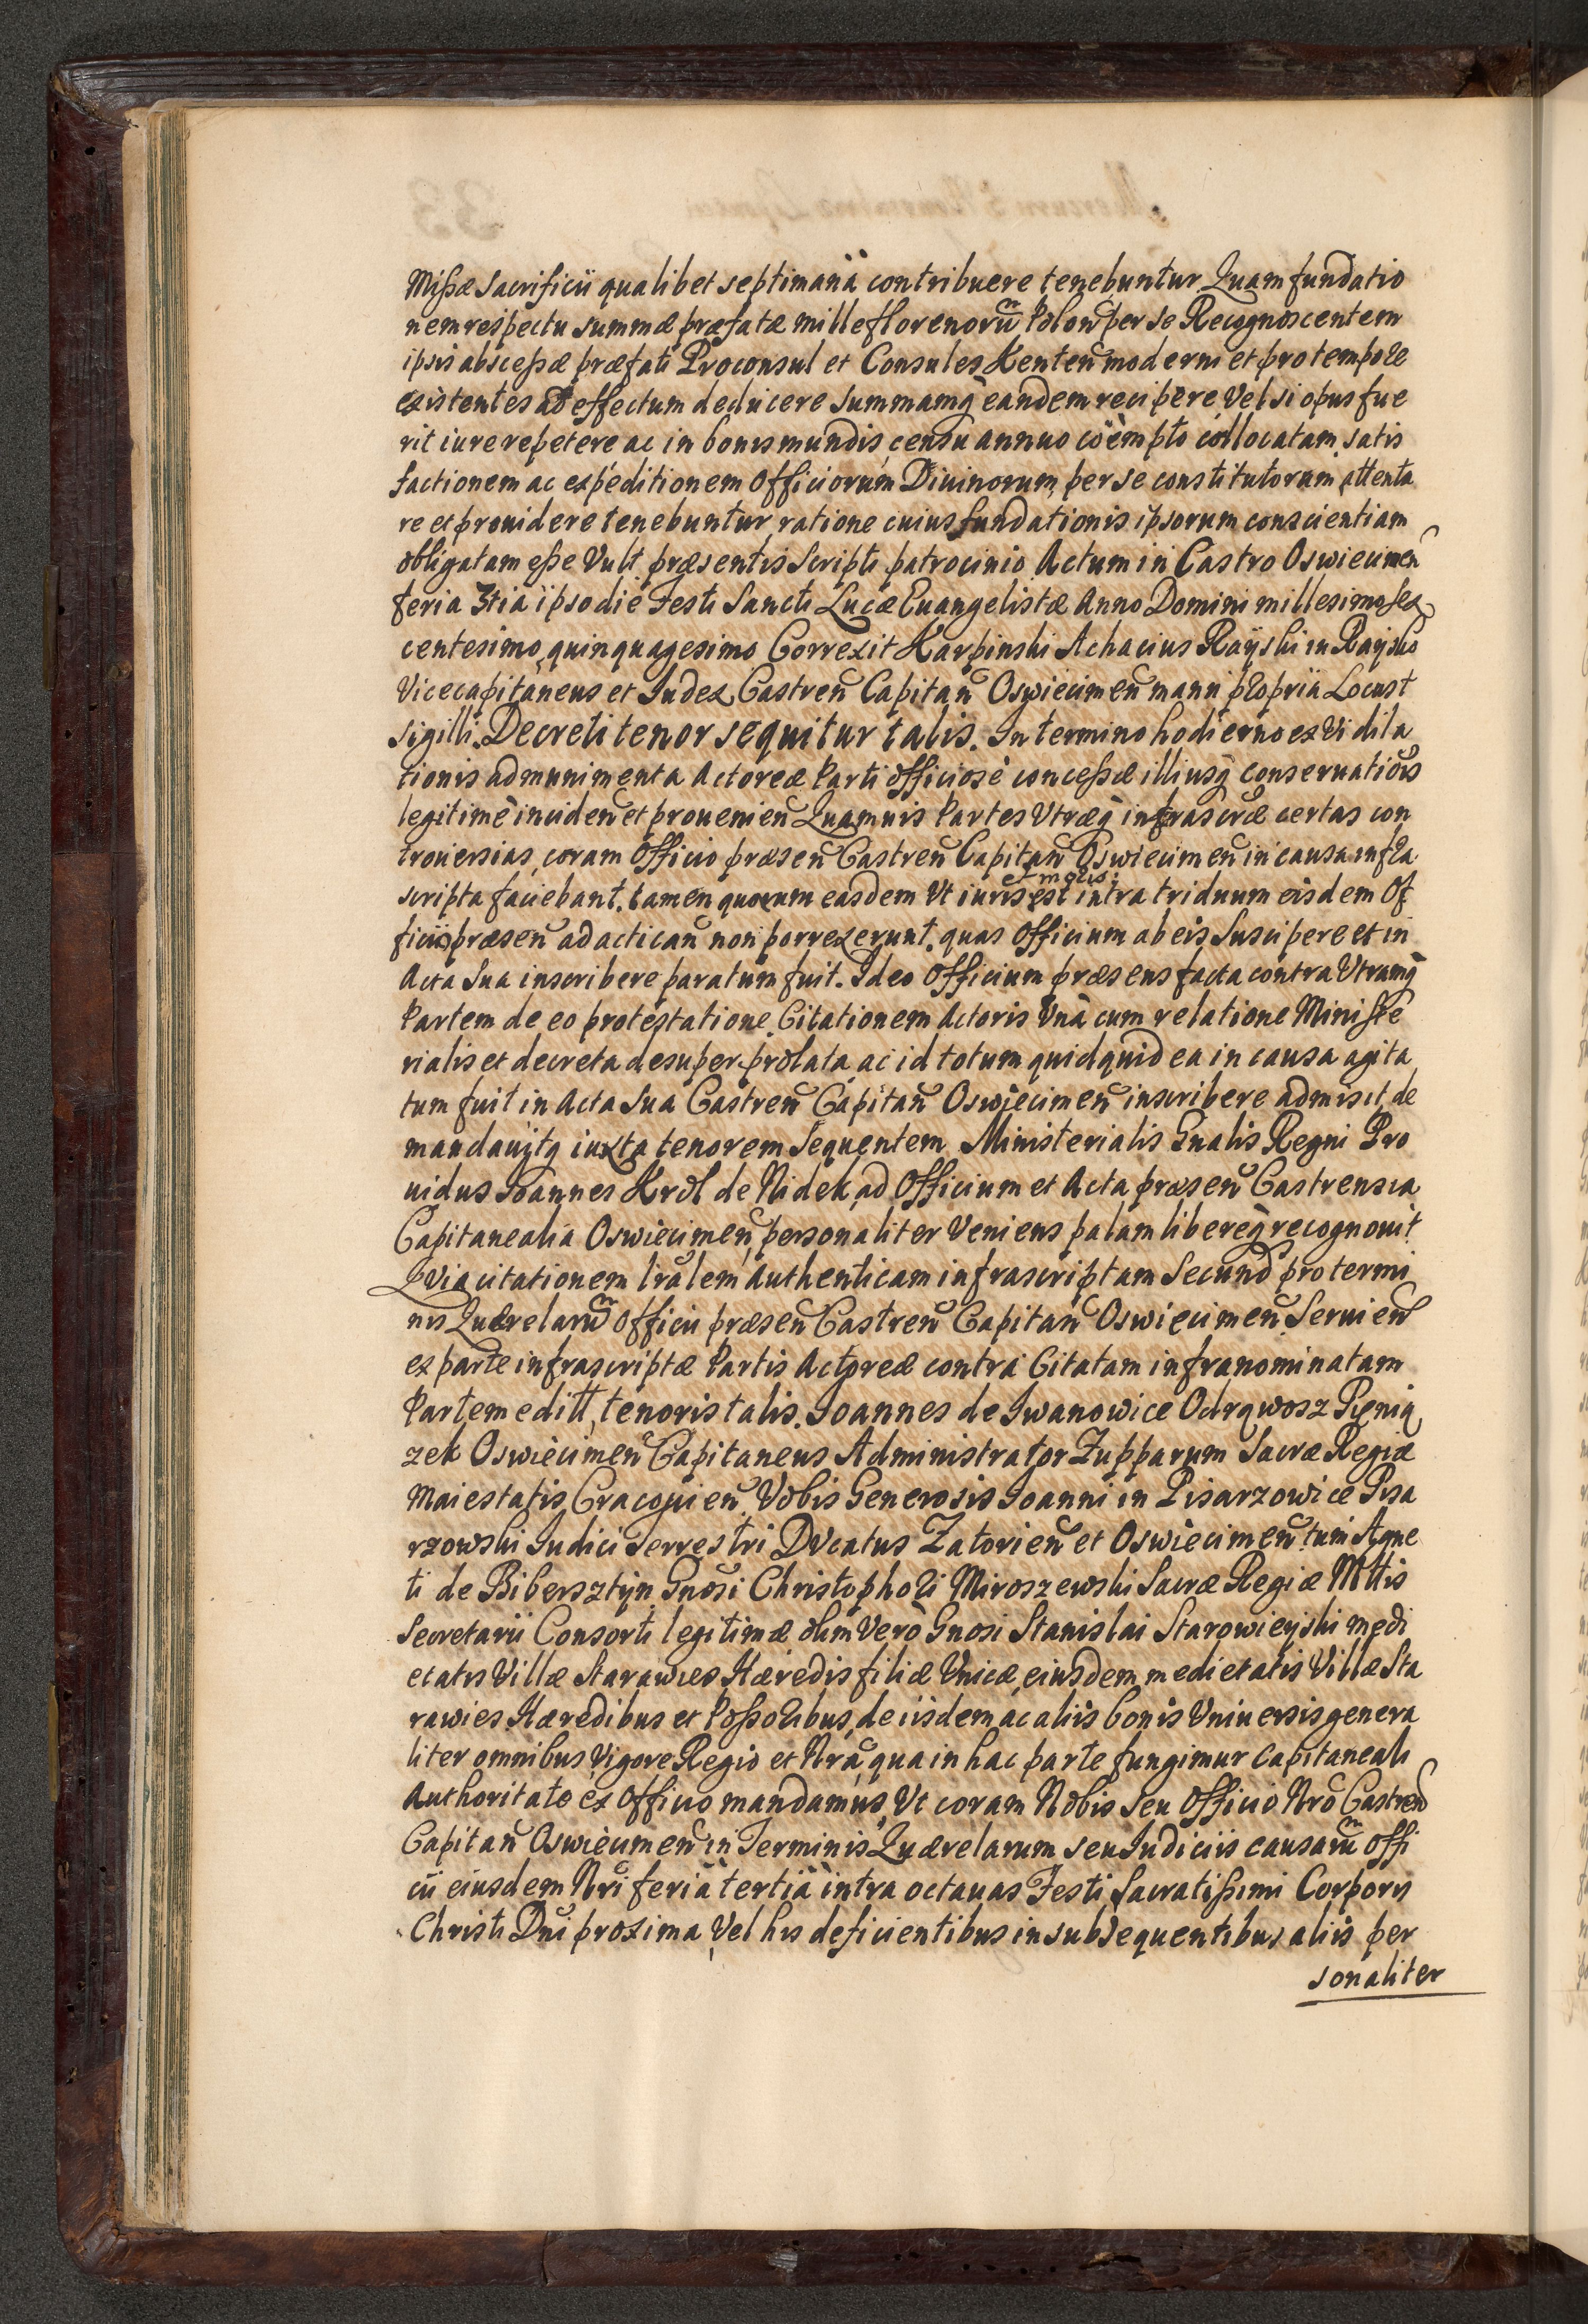 Missæ Sacrificii qualibet septimanâ contribuere tenebuntur Quam fundatio
nem respectu summæ præfatæ mille florenorũ Polon per se Recognoscentem
ipsis abscessæ præfati Proconsul et Consules Kenteñ moderni et pro tempore
existentes ad effectum deducere summamq̀ eandem recipere, Vel si opus fue
rit iure repetere ac in bonis mundis, censu annuo coëmpto collocatam, satis
factionem ac expeditionem Officiorum Diuinorum, per se constitutorum attenta
re et prouidere tenebuntur, ratione cuius fundationis ipsorum conscientiam
obligatam esse Vult præsentis Scripti patrocinio Actum in Castro Oswiecimeñ
feria 3tia ipso die Festi Sancti Lucæ Euangelistæ Anno Domini millesimo sex
centesimo, quinquagesimo Correxit Karpinski Achacius Rayski in Raysko
Vicecapitaneus et Iudex Castreñ Capitañ Oswiecimeñ manu propria Locus t
sigilli. Decreti tenor sequitur talis. In termino hodierno ex Vi dila
tionis ad munimenta Actoreæ Parti officiosè concessæ illiusq̀ conseruationis
legitimè incideñ et proueniẽn Quamuis Partes Utræq̀ infrascræ certas con
trouersias, coram Officio præseñ Castreñ Capitañ Oswiecimeñ in causa infra
et moris
scripta faciebant. tamen quoniam easdem Vt iuris est intra triduum eisdem Of
ficiis præseñ ad acticañ non porrexerunt. quas Officium ab eis Suscipere et in
Acta Sua inscribere paratum fuit. Ideo Officium præsens facta contra Utramq̀
Partem de eo protestatione. Citationem Actoris Vnà cum relatione Ministe
rialis et decreta desuper prolata, ac id totum quidquid ea in causa agita
tum fuit in Acta Sua Castreñ Capitañ Oswiecimeñ inscribere admisit, de
mandauitq iuxta tenorem Sequentem Ministerialis Gnalis Regni Pro
uidus Ioannes Krol de Nidek, ad Officium et Acta præseñ Castrensia
Capitanealia Oswiecimeñ, personaliter Veniens palam libereq̀ recognouit
Quia citationem lralem Authenticam infrascriptam Secund pro termi
nis Quærelarũ Officii præseñ Castreñ Capitañ Oswiecimeñ Seruieñ
ex parte infrascriptæ Partis Actoreæ contra Citatam infranominatam
Partem editt, tenoris talis. Ioannes de Iwanowice Odrąwosz Pienią
zek Oswiecimeñ Capitaneus Administrator Zupparum Sacræ Regiæ
Maiestatis, Cracouieñ. Vobis Generosis Ioanni in Pisarzowice Pisa
rzowski Iudici Terrestri Ducatus Zatorieñ et Oswiecimeñ. tum Agne
ti de Bibersztyn Gnosi Christophori Miroszewski Sacræ Regiæ Mttis
Secretarii Consorti legitimæ olim Verò Gnosi Stanislai Starowieyski medi
etatis Villæ Starawies Hæredis filiæ Vnicæ, eiusdem medietatis Villæ Sta
rawies Hæredibus et Possoribus, de iisdem ac aliis bonis Vniuersis genera
liter omnibus Vigore Regio et Nrâ qua in hac parte fungimur Capitaneali
Authoritate ex Officio mandamus, Vt coram Nobis Seu Officio Nro Castreñ
Capitañ Oswiecimeñ in Terminis Quærelarum seu Iudiciis causarũ Offi
cii eiusdem Nri feriâ tertiâ intra octauas Festi Sacratissimi Corporis
Christi Dni proxima, Vel his deficientibus in subsequentibus aliis per
sonaliter